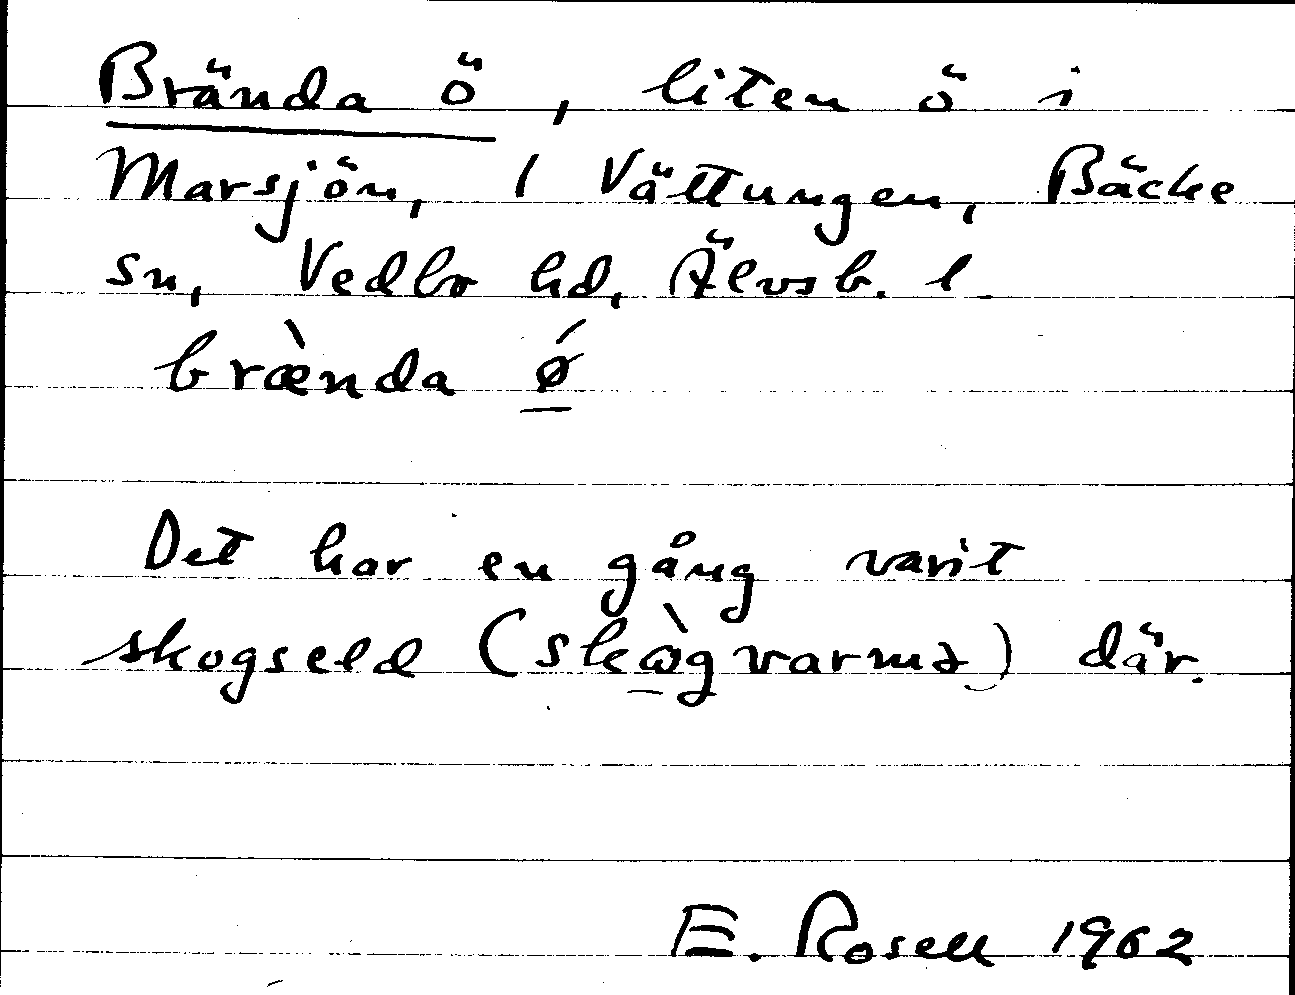 Brända ö, liten ö i
Marsjön, 1 Vättungen, Bäcke
sn, Vedbo hd, Älvsb. l
brænda ǿ
Det har en gång varit
skogseld (skògvarmə) där.
E. Rosell 1962